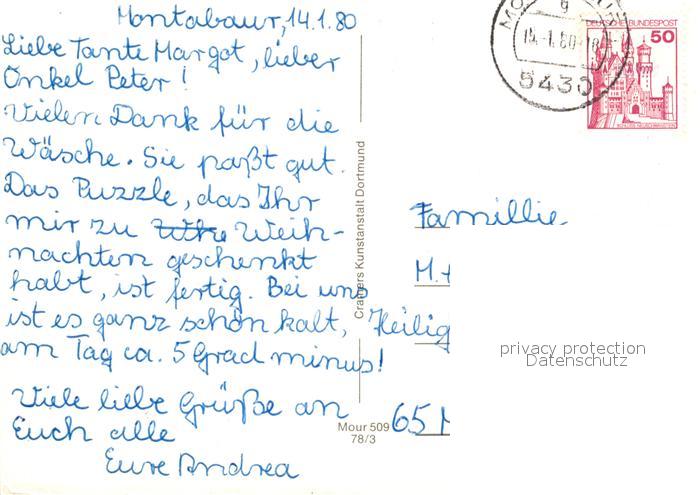 Montabaur, 14.1.80
Liebe Tante Margot, lieber
Onkel Peter!
Vielen Dank für die
Wäsche. Sie paßt gut.
Das Puzzle, das Ihr
mir zu Weih-
nachten geschenkt
habt, ist fertig. Bei uns
ist es ganz schön kalt,
am Tag ca. 5 Grad minus!
Viele liebe Grüße an
Euch alle
Eure Andrea
Cramers Kunstanstalt Dortmund
Mour 509
78/3
14.-1.80-18
5430
DEUTSCHE BUNDESPOST
50
SCHLOSS NEUSCHWANSTEIN
Famillie
M.
Heilig
65 M
privacy protection
Datenschutz